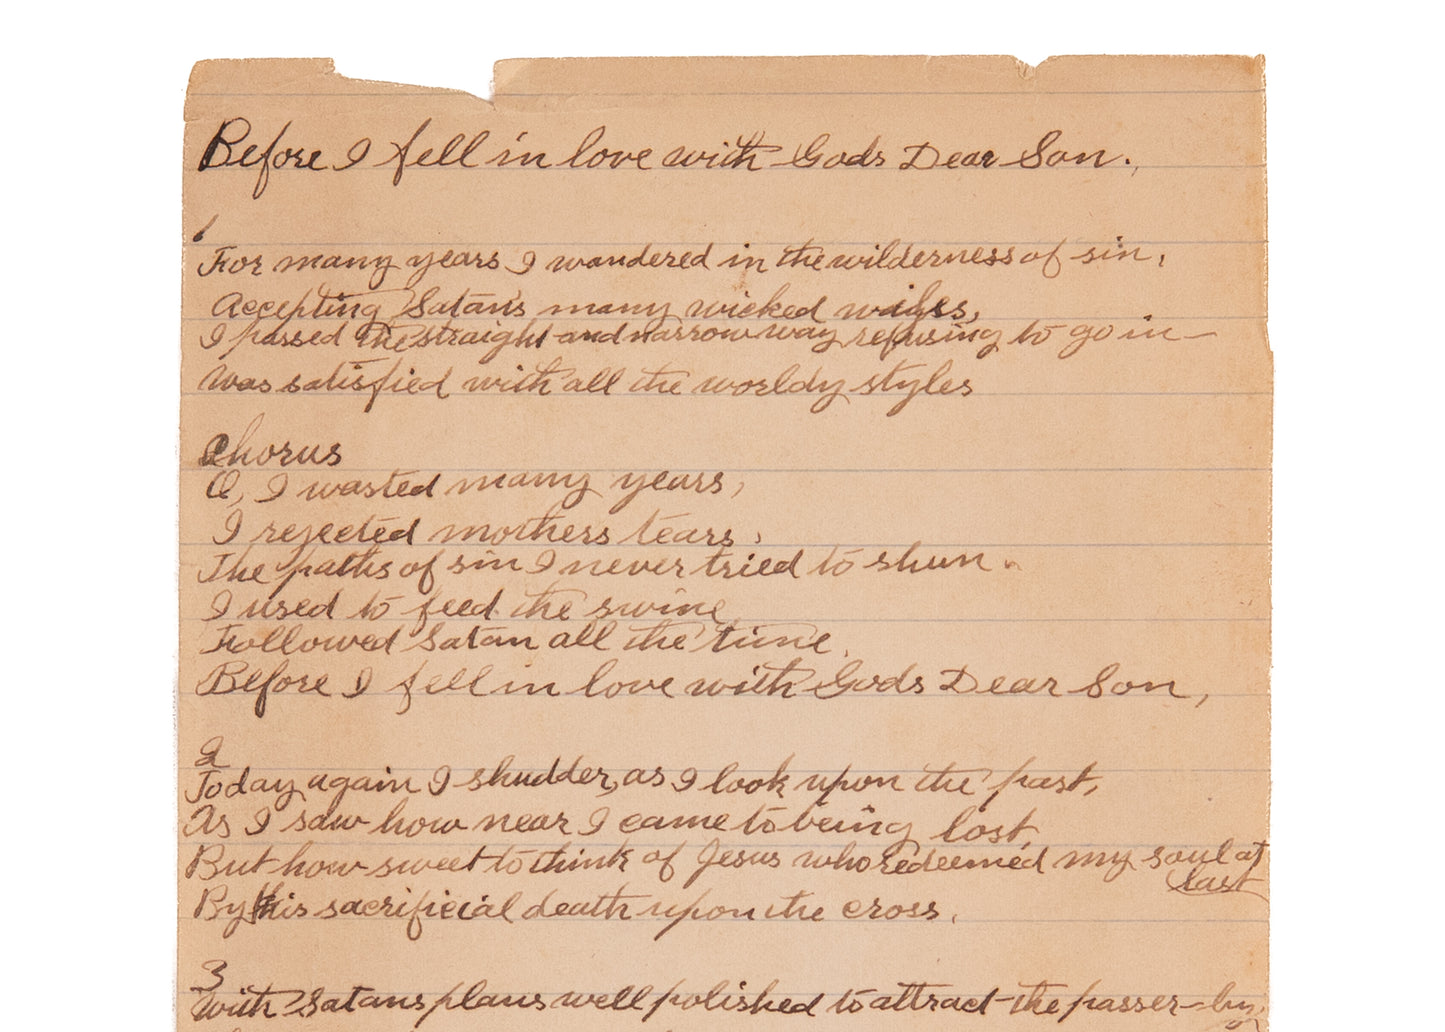 Before I fell in love with Gods Dear Son.,
1
For many years I wandered in the wilderness of sin,
Accepting Satan's many wicked wiles,
I passed the straight and narrow way refusing to go in—
Was satisfied with all the worldy styles
Chorus
O, I wasted many years,
I rejected mothers tears,
The paths of sin I never tried to shun.
I used to feed the swine
Followed Satan all the time.
Before I fell in love with Gods Dear Son,
2
Today again I shudder, as I look upon the past,
As I saw how near I came to being lost,
But how sweet to think of Jesus who redeemed my soul at
last
By His sacrificial death upon the cross.
3
With Satans plans well polished to attract the passer-by,